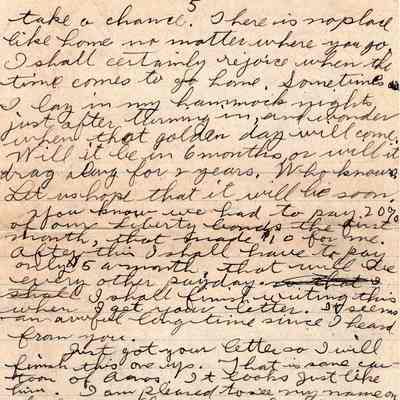 5
take a chance. There is no place
like home no matter where you go.
I shall certainly rejoice when the
time comes to go home. Sometimes
I lay in my hammock nights,
just after turning in, and wonder
when that golden day will come.
Will it be in 6 months, or will it
drag along for 2 years. Who knows.
Let us hope that it will be soon.
You know we had to pay 20%
of our Liberty bonds the first
month, that made $10 for me.
After this I shall have to pay
only $5 a month that will be
every other payday.
I shall finish writing this
when I get your letter. It seems
an awful long time since I heard
from you.
Just got your letter so I will
finish this one up. That is some car-
toon of Amos. It looks just like
him. I am pleased to see my name on